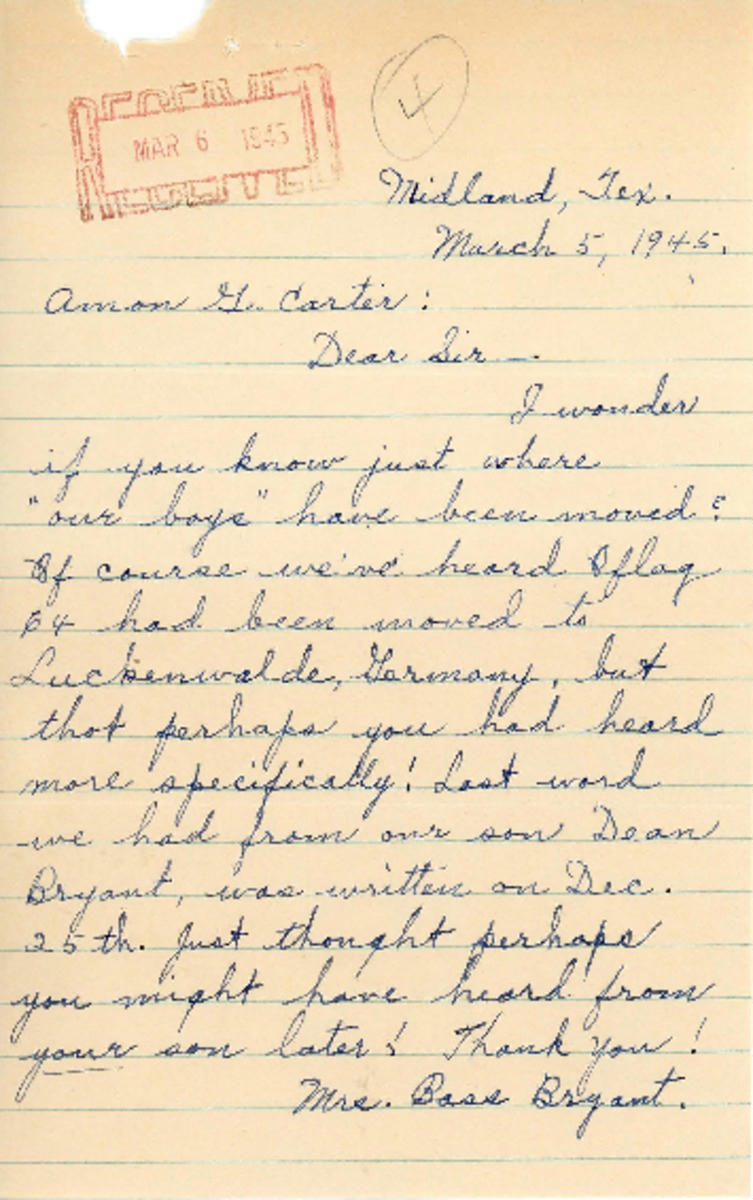 MAR 6 1945
4
Midland, Tex.
March 5, 1945.
Amon G. Carter:
Dear Sir —
I wonder
if you know just where
"our boys" have been moved?
Of course we've heard Oflag
64 had been moved to
Luckenwalde, Germany, but
that perhaps you had heard
more specifically! Last word
we had from our son Dean
Bryant, was written on Dec.
25th. Just thought perhaps
you might have heard from
your son later! Thank you!
Mrs. Bass Bryant.